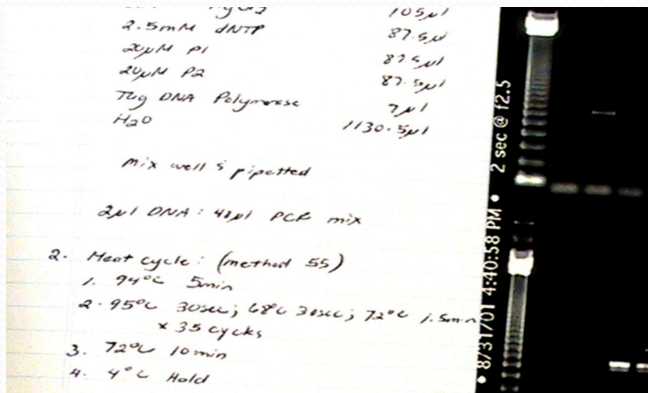 105µl
2.5mM dNTP 87.5µl
20µM P1 87.5µl
20µM P2 87.5µl
Taq DNA Polymerase 7µl
H2O 1130.5µl
mix well & pipetted
2µl DNA : 48µl PCR mix
2. Heat cycle: (method 55)
1. 94°C 5min
2. 95°C 30sec; 68°C 30sec; 72°C 1.5min
x 35 cycles
3. 72°C 10min
4. 4°C Hold
• 8/31/01 4:40:58 PM • 2 sec @ f2.5